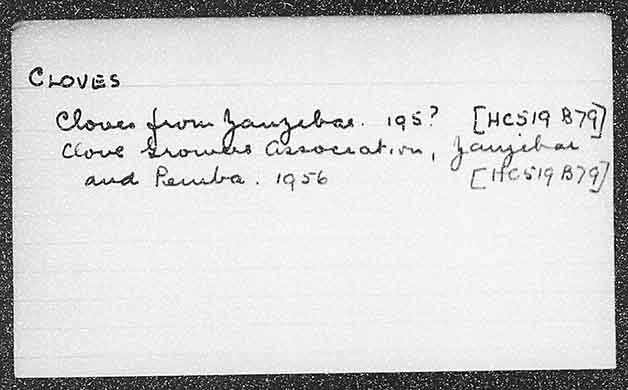 CLOVES
Cloves from Zanzibar. 195? [HC519 B79]
Clove Growers Association, Zanzibar
and Pemba. 1956 [HC519 B79]